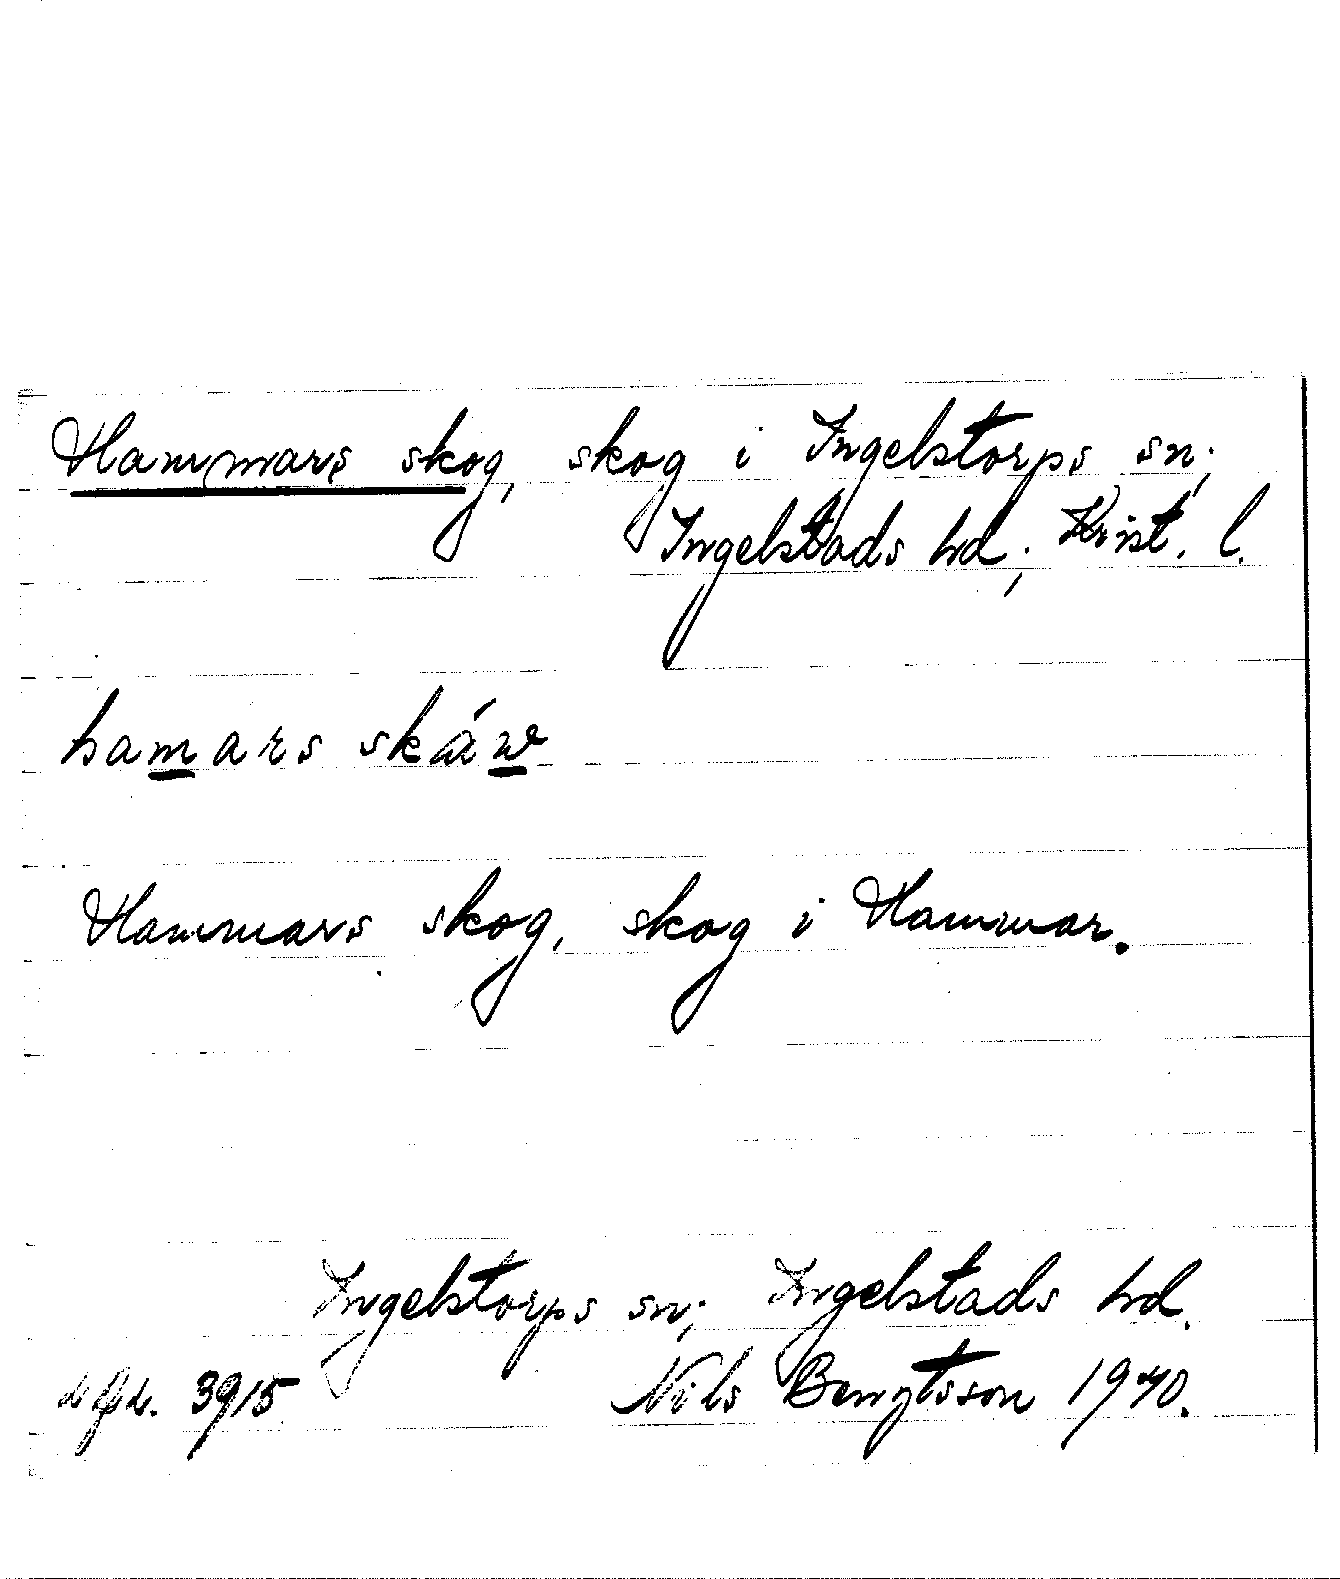 Hammars skog, skog i Ingelstorps sn;
Ingelstads hd; Krist. l.
hamars skáw
Hammars skog, skog i Hammar.
Ingelstorps sn; Ingelstads hd.
3915 Nils Bengtsson 1940.